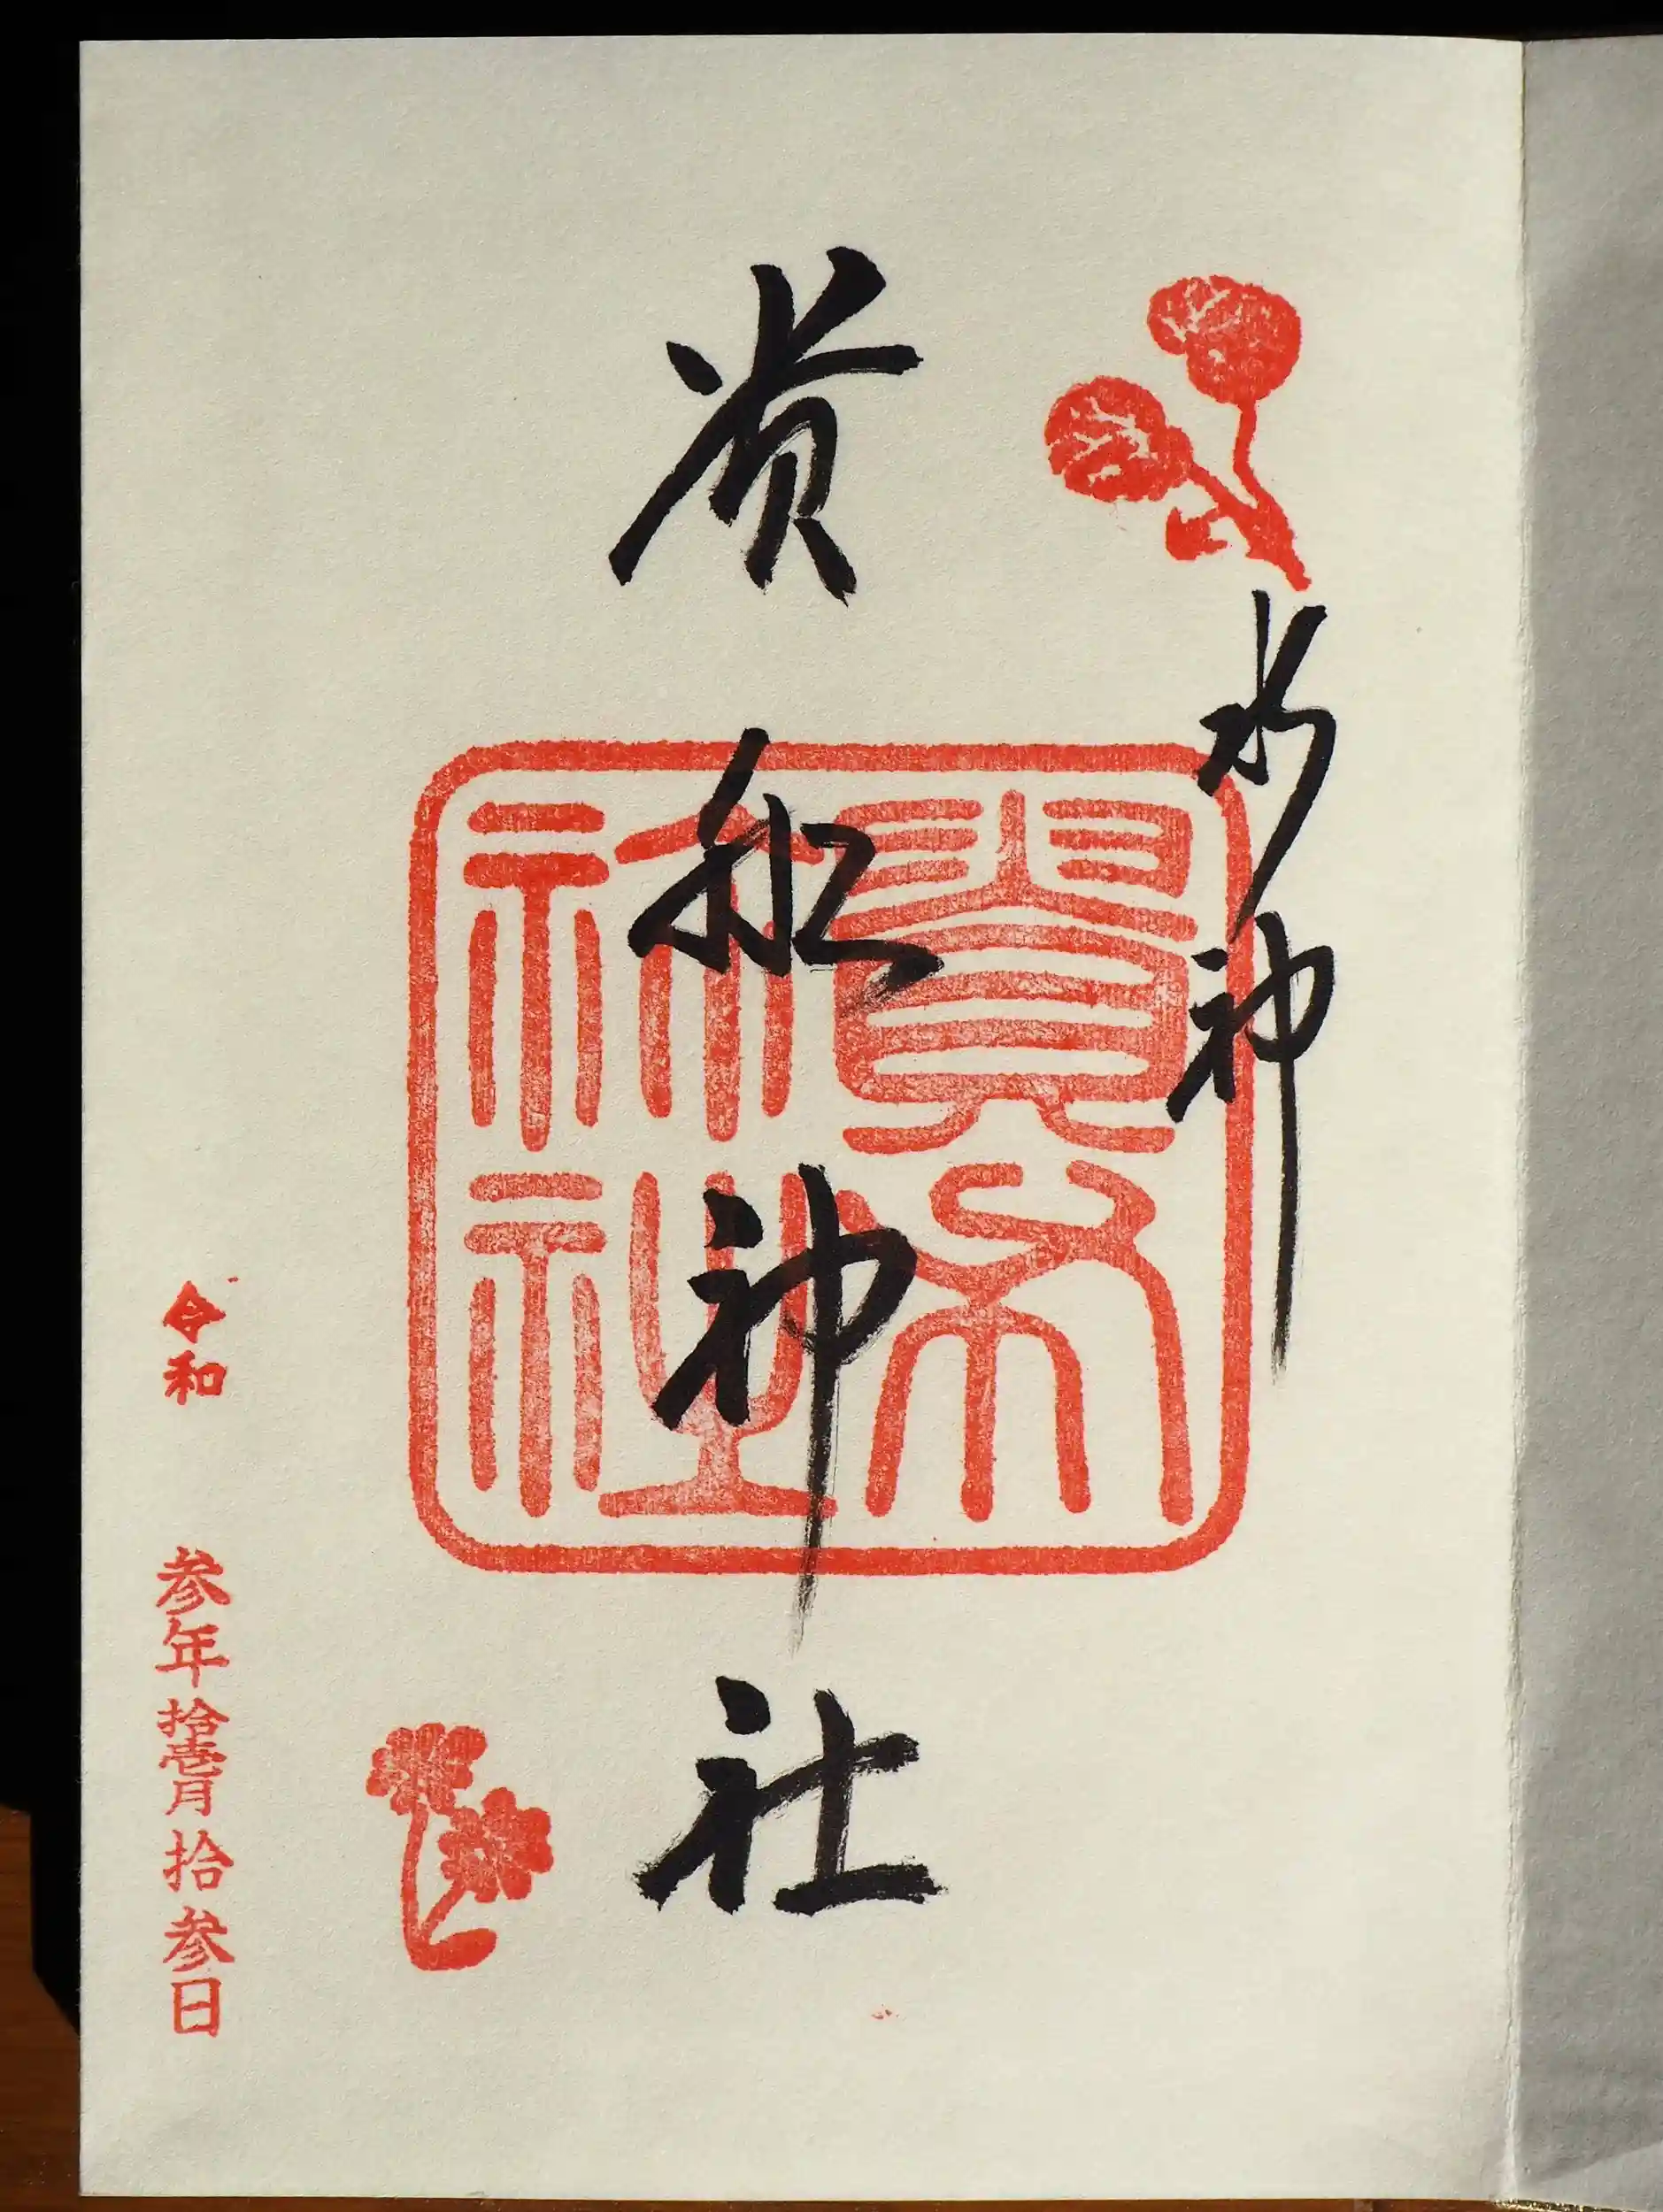 水神
貴船神社
貴布禰社
令和 参年拾壱月拾参日